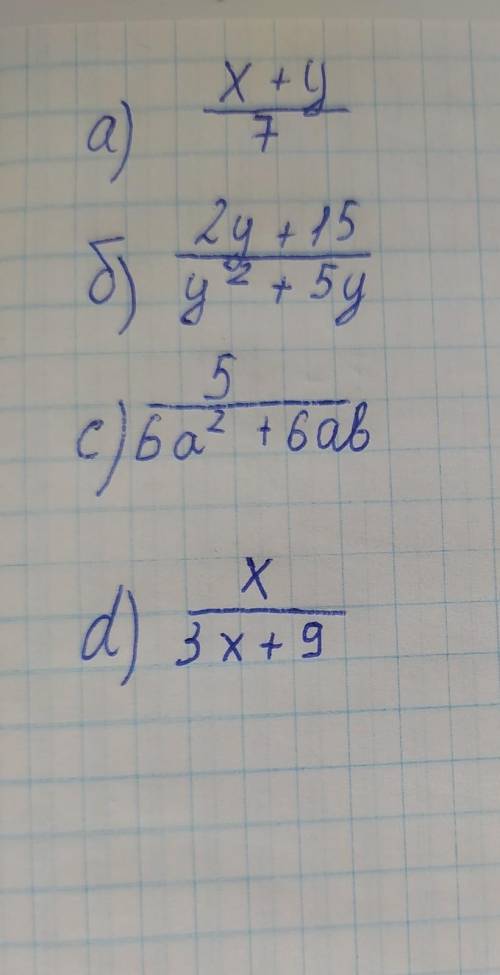 а) x + y / 7
б) 2y + 15 / y² + 5y
c) 5 / 6a² + 6ab
d) x / 3x + 9